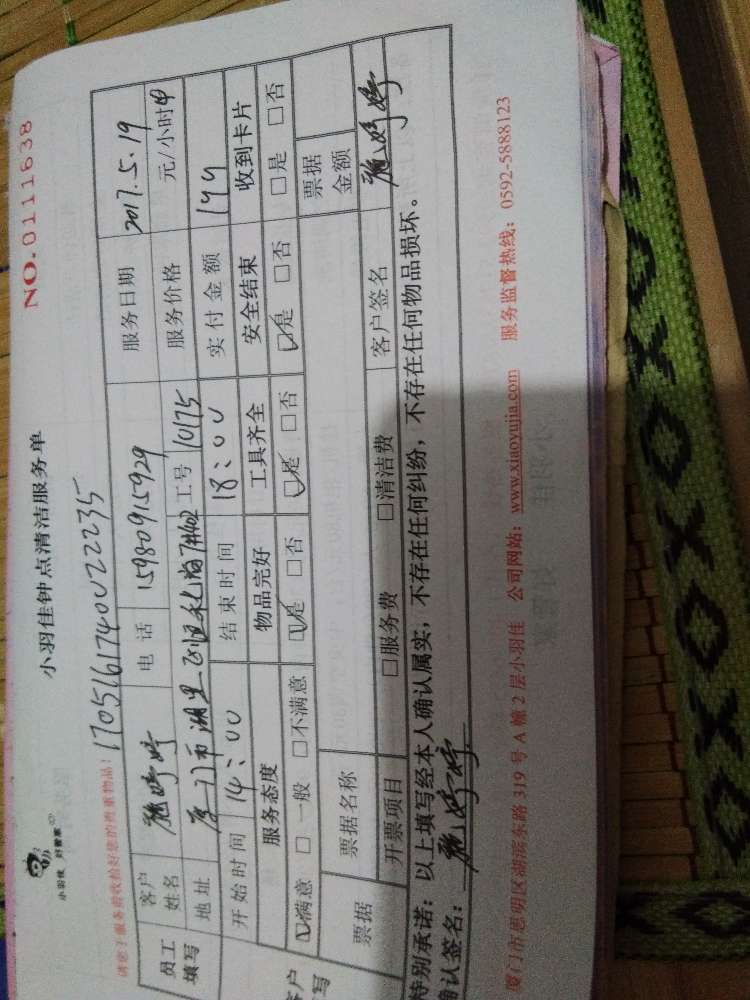 小羽佳 好管家
小羽佳钟点清洁服务单
NO.0111638
请您于服务前收拾好您的贵重物品!
1705161740022235
员工填写
客户姓名 施婷婷 电话 15980915929 服务日期 2017.5.19
地址 厦门市湖里 工号 10175 服务价格 元/小时
开始时间 14:00 结束时间 18:00 实付金额 144
服务态度 物品完好 工具齐全 安全结束 收到卡片
☑满意 □一般 □不满意 ☑是 □否 ☑是 □否 ☑是 □否 □是 □否
票据 票据名称 票据金额
开票项目 □服务费 □清洁费 客户签名 施婷婷
特别承诺:以上填写经本人确认属实,不存在任何纠纷,不存在任何物品损坏。
确认签名: 施婷婷
厦门市思明区湖滨东路 319 号 A 幢 2 层小羽佳 公司网站:www.xiaoyujia.com 服务监督热线:0592-5888123